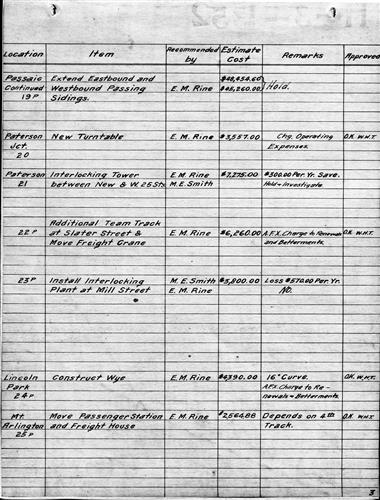 Location Item Recommended by Estimate Cost Remarks Approved
Passaic Continued 19P Extend Eastbound and Westbound Passing Sidings. E. M. Rine $48,454.60 $45,260.00 Hold.
Paterson Jct. 20 New Turntable E. M. Rine $3,557.00 Chg. Operating Expenses. O.K. W.H.T.
Paterson 21 Interlocking Tower between New & W. 25 Sts. E. M. Rine M. E. Smith $7,275.00 $300.00 Per. Yr. Save. Hold & investigate.
22P Additional Team Track at Slater Street & Move Freight Crane E. M. Rine $6,260.00 A.F.X. Charge to Renewals and Betterments. O.K. W.H.T.
23P Install Interlocking Plant at Mill Street M. E. Smith E. M. Rine $5,800.00 Loss $570.00 Per. Yr. No.
Lincoln Park 24P Construct Wye E. M. Rine $4390.00 16° Curve. A.F.X. Charge to Renewals & Betterments. O.K. W.H.T.
Mt. Arlington 25P Move Passenger Station and Freight House E. M. Rine $2,564.88 Depends on 4th Track. O.K. W.H.T.
3